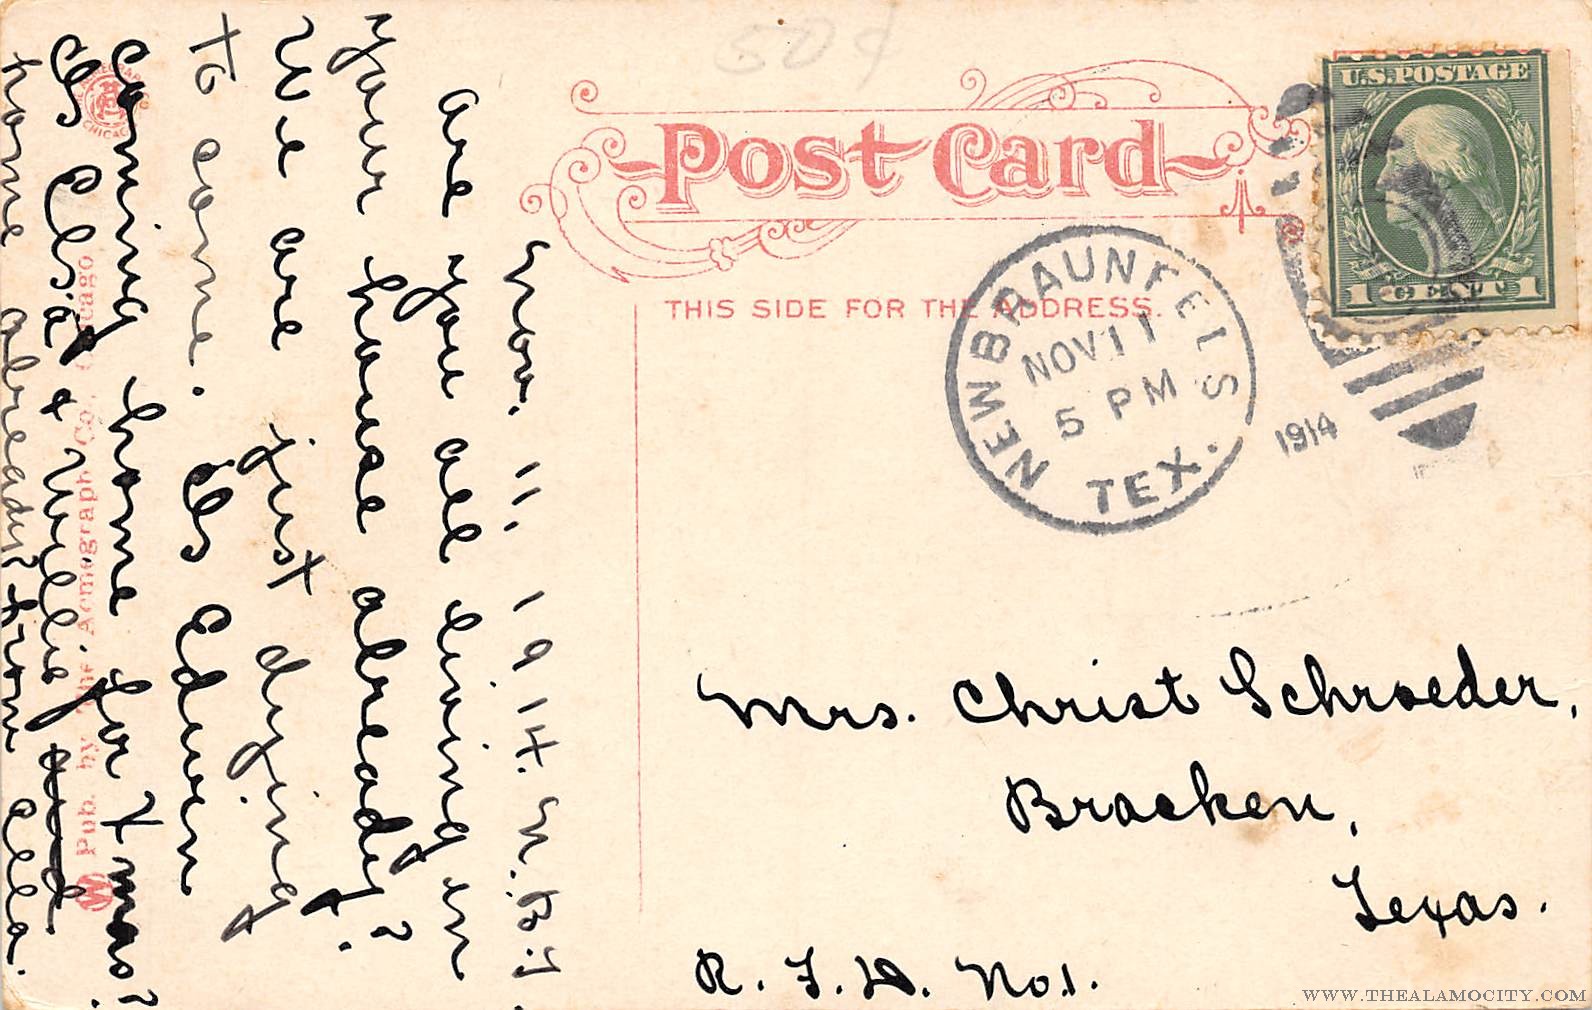 50¢
Post Card
THIS SIDE FOR THE ADDRESS.
U.S. POSTAGE
1 1
NEW BRAUNFELS
NOV 11
5 PM
TEX.
1914
Nov. 11, 1914. N.B.T.
Are you all living in
your house already?
We are just dying
to come. Is Edwin
coming home for Xmas?
Is Elsa & Willie and
home already? From Ella.
Mrs. Christ Schroeder,
Bracken,
Texas.
R. F. D. No.1.
Pub. by The Acmegraph Co., Chicago
CHICAGO
WWW.THEALAMOCITY.COM